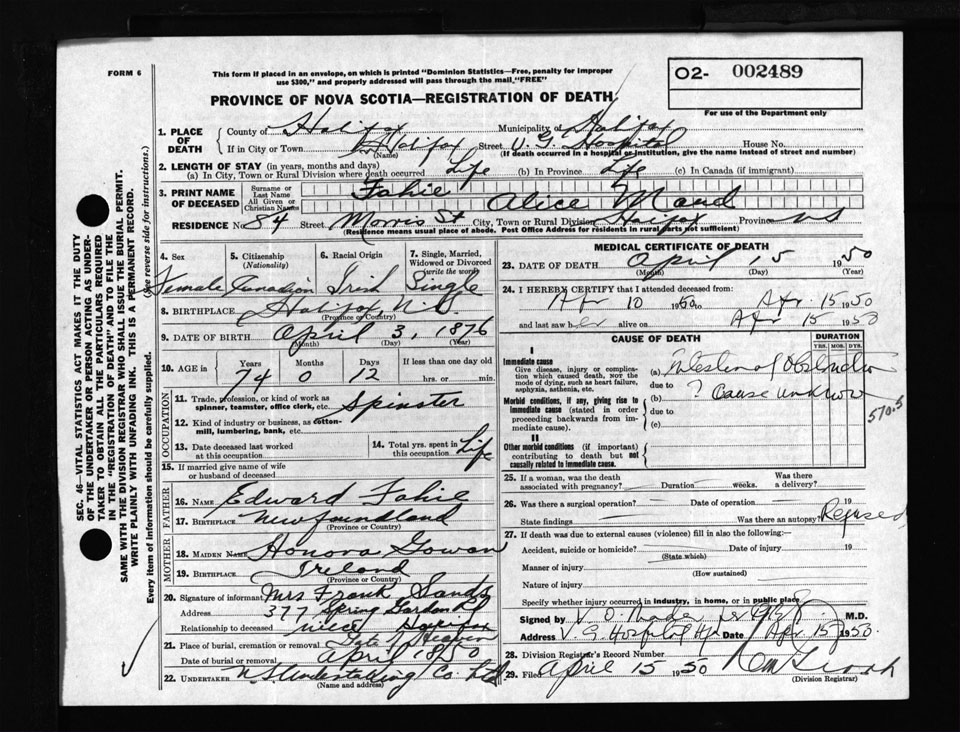 FORM 6
This form if placed in an envelope, on which is printed "Dominion Statistics—Free, penalty for improper
use $300," and properly addressed will pass through the mail,"FREE"
O2- 002489
For use of the Department only
PROVINCE OF NOVA SCOTIA—REGISTRATION OF DEATH
1. PLACE OF DEATH
County of Halifax Municipality of Halifax
If in City or Town Halifax Street V. G. Hospital House No.
(Name) (If death occurred in a hospital or institution, give the name instead of street and number)
2. LENGTH OF STAY (in years, months and days)
(a) In City, Town or Rural Division where death occurred Life (b) In Province Life (c) In Canada (if immigrant)
3. PRINT NAME OF DECEASED
Surname or Last Name Fahie
All Given or Christian Names Alice Maud
RESIDENCE No. 84 Street Morris St City, Town or Rural Division Halifax Province NS
(Residence means usual place of abode. Post Office Address for residents in rural parts not sufficient)
4. Sex 5. Citizenship (Nationality) 6. Racial Origin 7. Single, Married, Widowed or Divorced (write the word)
Female Canadian Irish Single
8. BIRTHPLACE Halifax N.S.
(Province or Country)
9. DATE OF BIRTH April 3, 1876
(Month) (Day) (Year)
10. AGE in Years Months Days If less than one day old
74 0 12 hrs. or min.
OCCUPATION
11. Trade, profession, or kind of work as spinner, teamster, office clerk, etc. Spinster
12. Kind of industry or business, as cotton-mill, lumbering, bank, etc.
13. Date deceased last worked at this occupation
14. Total yrs. spent in this occupation Life
15. If married give name of wife or husband of deceased
FATHER
16. NAME Edward Fahie
17. BIRTHPLACE Newfoundland
(Province or Country)
MOTHER
18. MAIDEN NAME Honora Gowan
19. BIRTHPLACE Ireland
(Province or Country)
20. Signature of informant Mrs Frank Sands
Address 377 Spring Garden Rd
Relationship to deceased niece Halifax
21. Place of burial, cremation or removal Gate of Heaven
Date of burial or removal April 18/50
22. UNDERTAKER N.S. Undertaking Co. Ltd
(Name and address)
MEDICAL CERTIFICATE OF DEATH
23. DATE OF DEATH April 15 1950
(Month) (Day) (Year)
24. I HEREBY CERTIFY that I attended deceased from:
Apr 10 1950 to Apr 15 1950
and last saw her alive on Apr 15 1950
CAUSE OF DEATH
DURATION
YRS. MOS. DYS.
I
Immediate cause
Give disease, injury or complication which caused death, NOT the mode of dying, such as heart failure, asphyxia, asthenia, etc.
(a) Intestinal Obstruction
due to
Morbid conditions, if any, giving rise to immediate cause (stated in order proceeding backwards from immediate cause).
(b) ? cause unknown
due to
(c)
570.5
II
Other morbid conditions (if important) contributing to death but not causally related to immediate cause.
25. If a woman, was the death associated with pregnancy? Duration weeks. Was there a delivery?
26. Was there a surgical operation? Date of operation 19
State findings Was there an autopsy? Refused
27. If death was due to external causes (violence) fill in also the following:—
Accident, suicide or homicide? Date of injury 19
(State which)
Manner of injury
(How sustained)
Nature of injury
Specify whether injury occurred in industry, in home, or in public place
Signed by M.D.
Address V. G. Hospital Hfx Date Apr 15 1950.
28. Division Registrar's Record Number
29. Filed April 15 1950
(Division Registrar)
SEC. 46—VITAL STATISTICS ACT MAKES IT THE DUTY
OF THE UNDERTAKER OR PERSON ACTING AS UNDER-
TAKER TO OBTAIN ALL THE PARTICULARS REQUIRED
IN THE "REGISTRATION OF DEATH" AND TO FILE THE
SAME WITH THE DIVISION REGISTRAR WHO SHALL ISSUE THE BURIAL PERMIT.
WRITE PLAINLY WITH UNFADING INK. THIS IS A PERMANENT RECORD.
Every item of information should be carefully supplied. (See reverse side for instructions.)